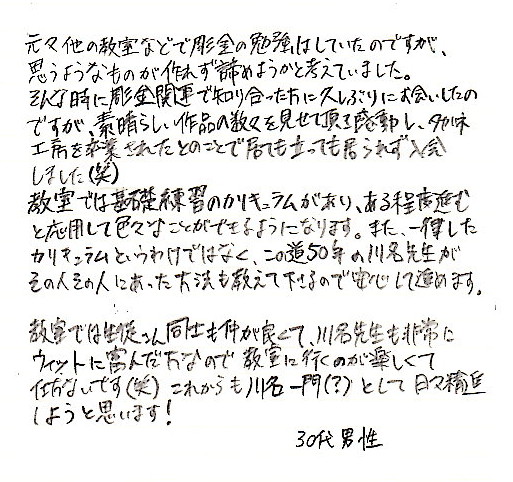 元々他の教室などで彫金の勉強はしていたのですが、
思うようなものが作れず諦めようかと考えていました。
そんな時に彫金関連で知り合った方に久しぶりにお会いしたの
ですが、素晴らしい作品の数々を見せて頂き感動し、タカ味
工房を卒業されたとのことで居ても立っても居られず入会
しました(笑)
教室では基礎練習のカリキュラムがあり、ある程度進む
と応用して色々なことができるようになります。また、一律した
カリキュラムというわけではなく、この道50年の川名先生が
その人その人にあった方法も教えて下さるので安心して進めます。
教室では生徒さん同士も仲が良くて、川名先生も非常に
ウィットに富んだ方なので教室に行くのが楽しくて
仕方ないです(笑) これからも川名一門(?)として日々精進
しようと思います!
30代男性